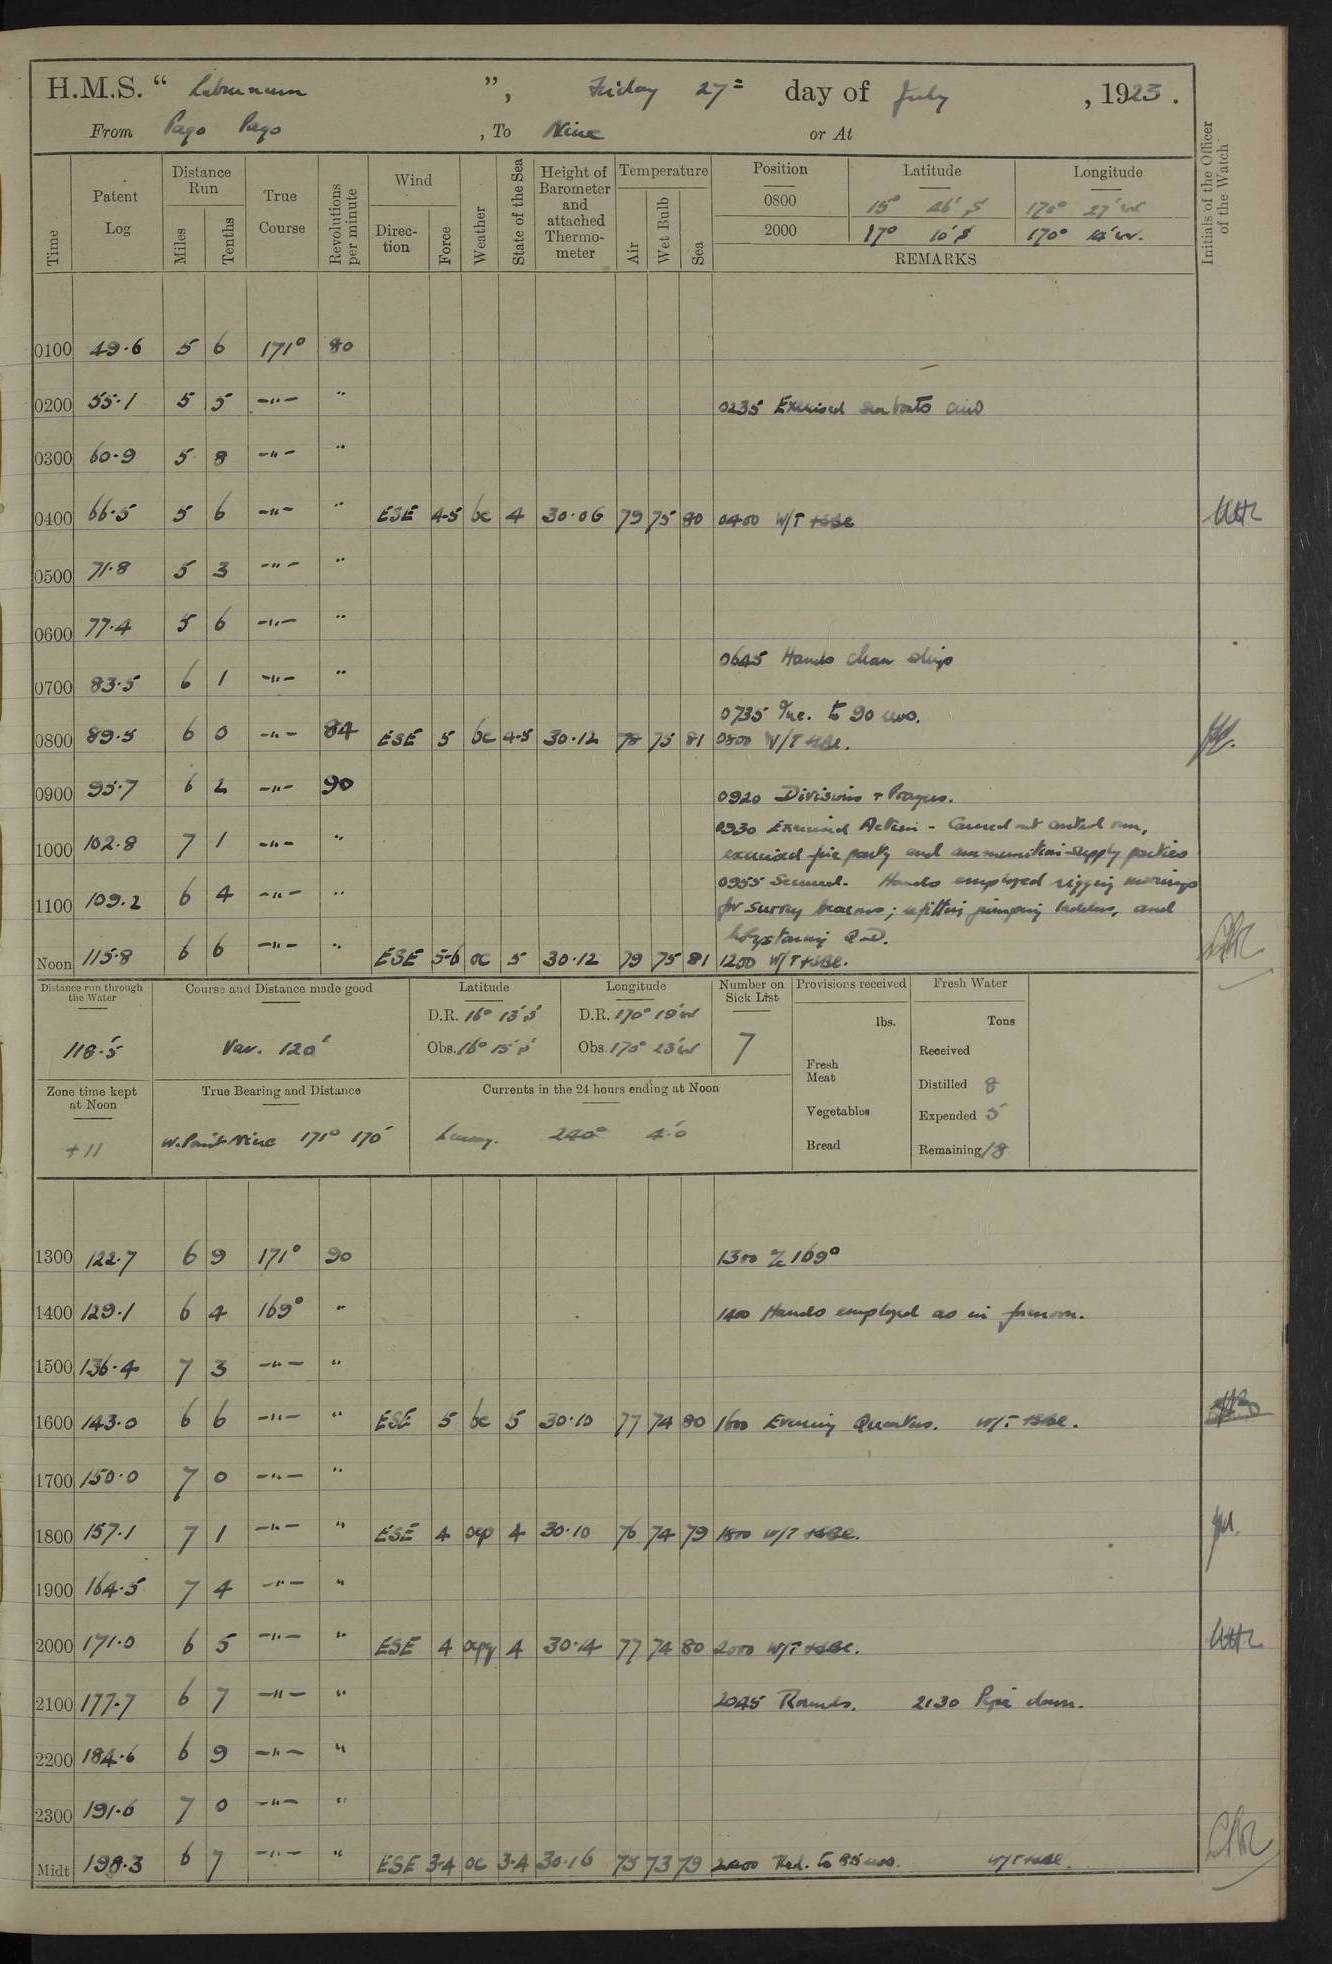 H.M.S. “ Laburnum ”, Friday 27= day of July , 1923.
From Pago Pago , To Niue or At
Time Patent Log Distance Run Miles Tenths True Course Revolutions per minute Wind Direction Force Weather State of the Sea Height of Barometer and attached Thermometer Temperature Air Wet Bulb Sea Position Latitude Longitude Initials of the Officer of the Watch
0800 15° 26' S 170° 27' W
2000 17° 10' S 170° W.
REMARKS
0100 49.6 5 6 171° 80
0200 55.1 5 5 -"- "
0235 Exercised sea boats crew
0300 60.9 5 8 -"- "
0400 66.5 5 6 -"- " ESE 4-5 bc 4 30.06 79 75 80 0400 W/T
0500 71.8 5 3 -"- "
0600 77.4 5 6 -"- "
0645 Hands clean ship
0700 83.5 6 1 -"- "
0735 Inc. to 90 revs.
0800 89.5 6 0 -"- 84 ESE 5 bc 4-5 30.12 78 75 81 0800 W/T
0900 95.7 6 2 -"- 90
0920 Divisions + Prayers.
0930 Exercised Action - Carried out control run,
1000 102.8 7 1 -"- "
exercised fire party and ammunition supply parties
0955 Secured. Hands employed rigging moorings
1100 109.2 6 4 -"- "
for survey beacons; refitting jumping ladders, and
holystoning Q.D.
Noon 115.8 6 6 -"- " ESE 5-6 oc 5 30.12 79 75 81 1200 W/T
Distance run through the Water Course and Distance made good Latitude Longitude Number on Sick List Provisions received Fresh Water
D.R. 16° 13' S D.R. 170° 19' W
lbs. Tons
118.5' Var. 120' Obs. 16° 15' S Obs. 170° 23' W 7
Received
Fresh Meat
Zone time kept at Noon True Bearing and Distance Currents in the 24 hours ending at Noon
Distilled 8
Vegetables Expended 5
+11 W. Point Niue 171° 170' 240° 4.0
Bread Remaining 18
1300 122.7 6 9 171° 90 1300 a/c 169°
1400 129.1 6 4 169° " 1400 Hands employed as in forenoon.
1500 136.4 7 3 -"- "
1600 143.0 6 6 -"- " ESE 5 bc 5 30.10 77 74 80 1600 Evening Quarters. W/T
1700 150.0 7 0 -"- "
1800 157.1 7 1 -"- " ESE 4 ocp 4 30.10 76 74 79 1800 W/T
1900 164.5 7 4 -"- "
2000 171.0 6 5 -"- " ESE 4 ocpq 4 30.14 77 74 80 2000 W/T
2100 177.7 6 7 -"- " 2045 Rounds. 2130 Pipe down.
2200 184.6 6 9 -"- "
2300 191.6 7 0 -"- "
Midt 198.3 6 7 -"- " ESE 3-4 oc 3-4 30.16 75 73 79 2400 Red. to 85 revs. W/T